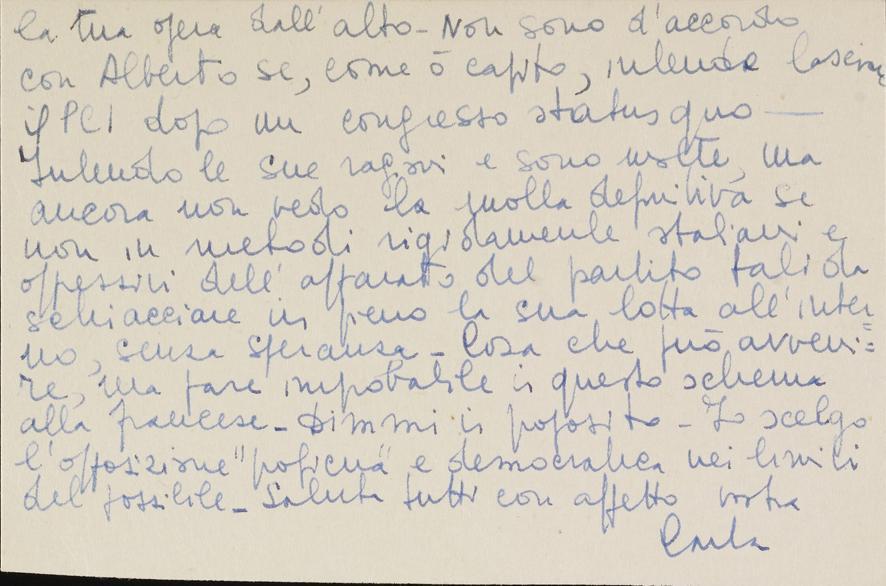 la tua opera dall'alto - Non sono d'accordo
con Alberto se, come ō capito, intende lasciare
il PCI dopo un congresso status quo —
Intendo le sue ragioni e sono molte, ma
ancora non vedo la molla definitiva se
non in metodi rigidamente staliani e
oppessivi dell'apparato del partito tali da
schiacciare in pieno la sua lotta all'inter=
no, senza speranza - Cosa che può avveni=
re, ma pare improbabile in questo schema
alla francese - Dimmi in proposito - Io scelgo
l'opposizione "proficua" e democratica nei limiti
del possibile - Saluta tutti con affetto vostra
Carla